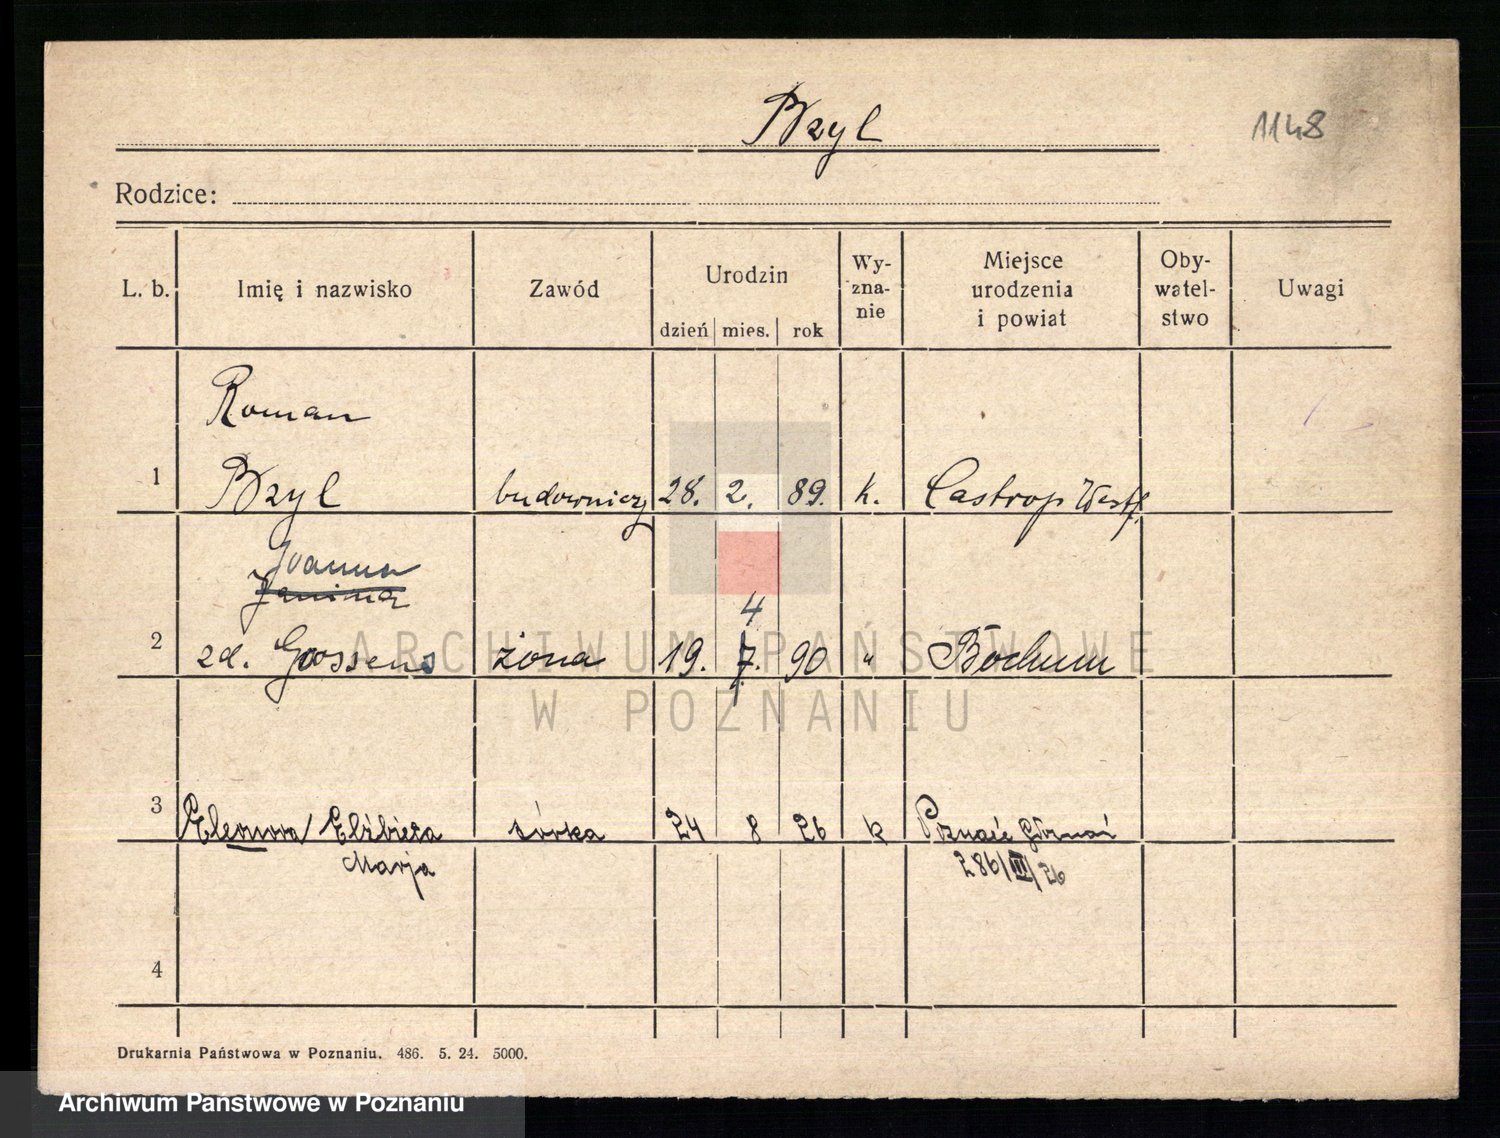 Bzyl
1148
Rodzice:
L. b. Imię i nazwisko Zawód Urodzin Wy-zna-nie Miejsce urodzenia i powiat Oby-watel-stwo Uwagi
dzień mies. rok
Roman
1 Bzyl budowniczy 28. 2. 89. k. Castrop Westf.
Joanna
Janina
4
2 zd. Goossens żona 19. 7. 90 " Bochum
3 Eleonora Elżbieta córka 24 8 26 k Poznań
Marja 286/III/26
4
Drukarnia Państwowa w Poznaniu. 486. 5. 24. 5000.
ARCHIWUM PAŃSTWOWE
W POZNANIU
Archiwum Państwowe w Poznaniu